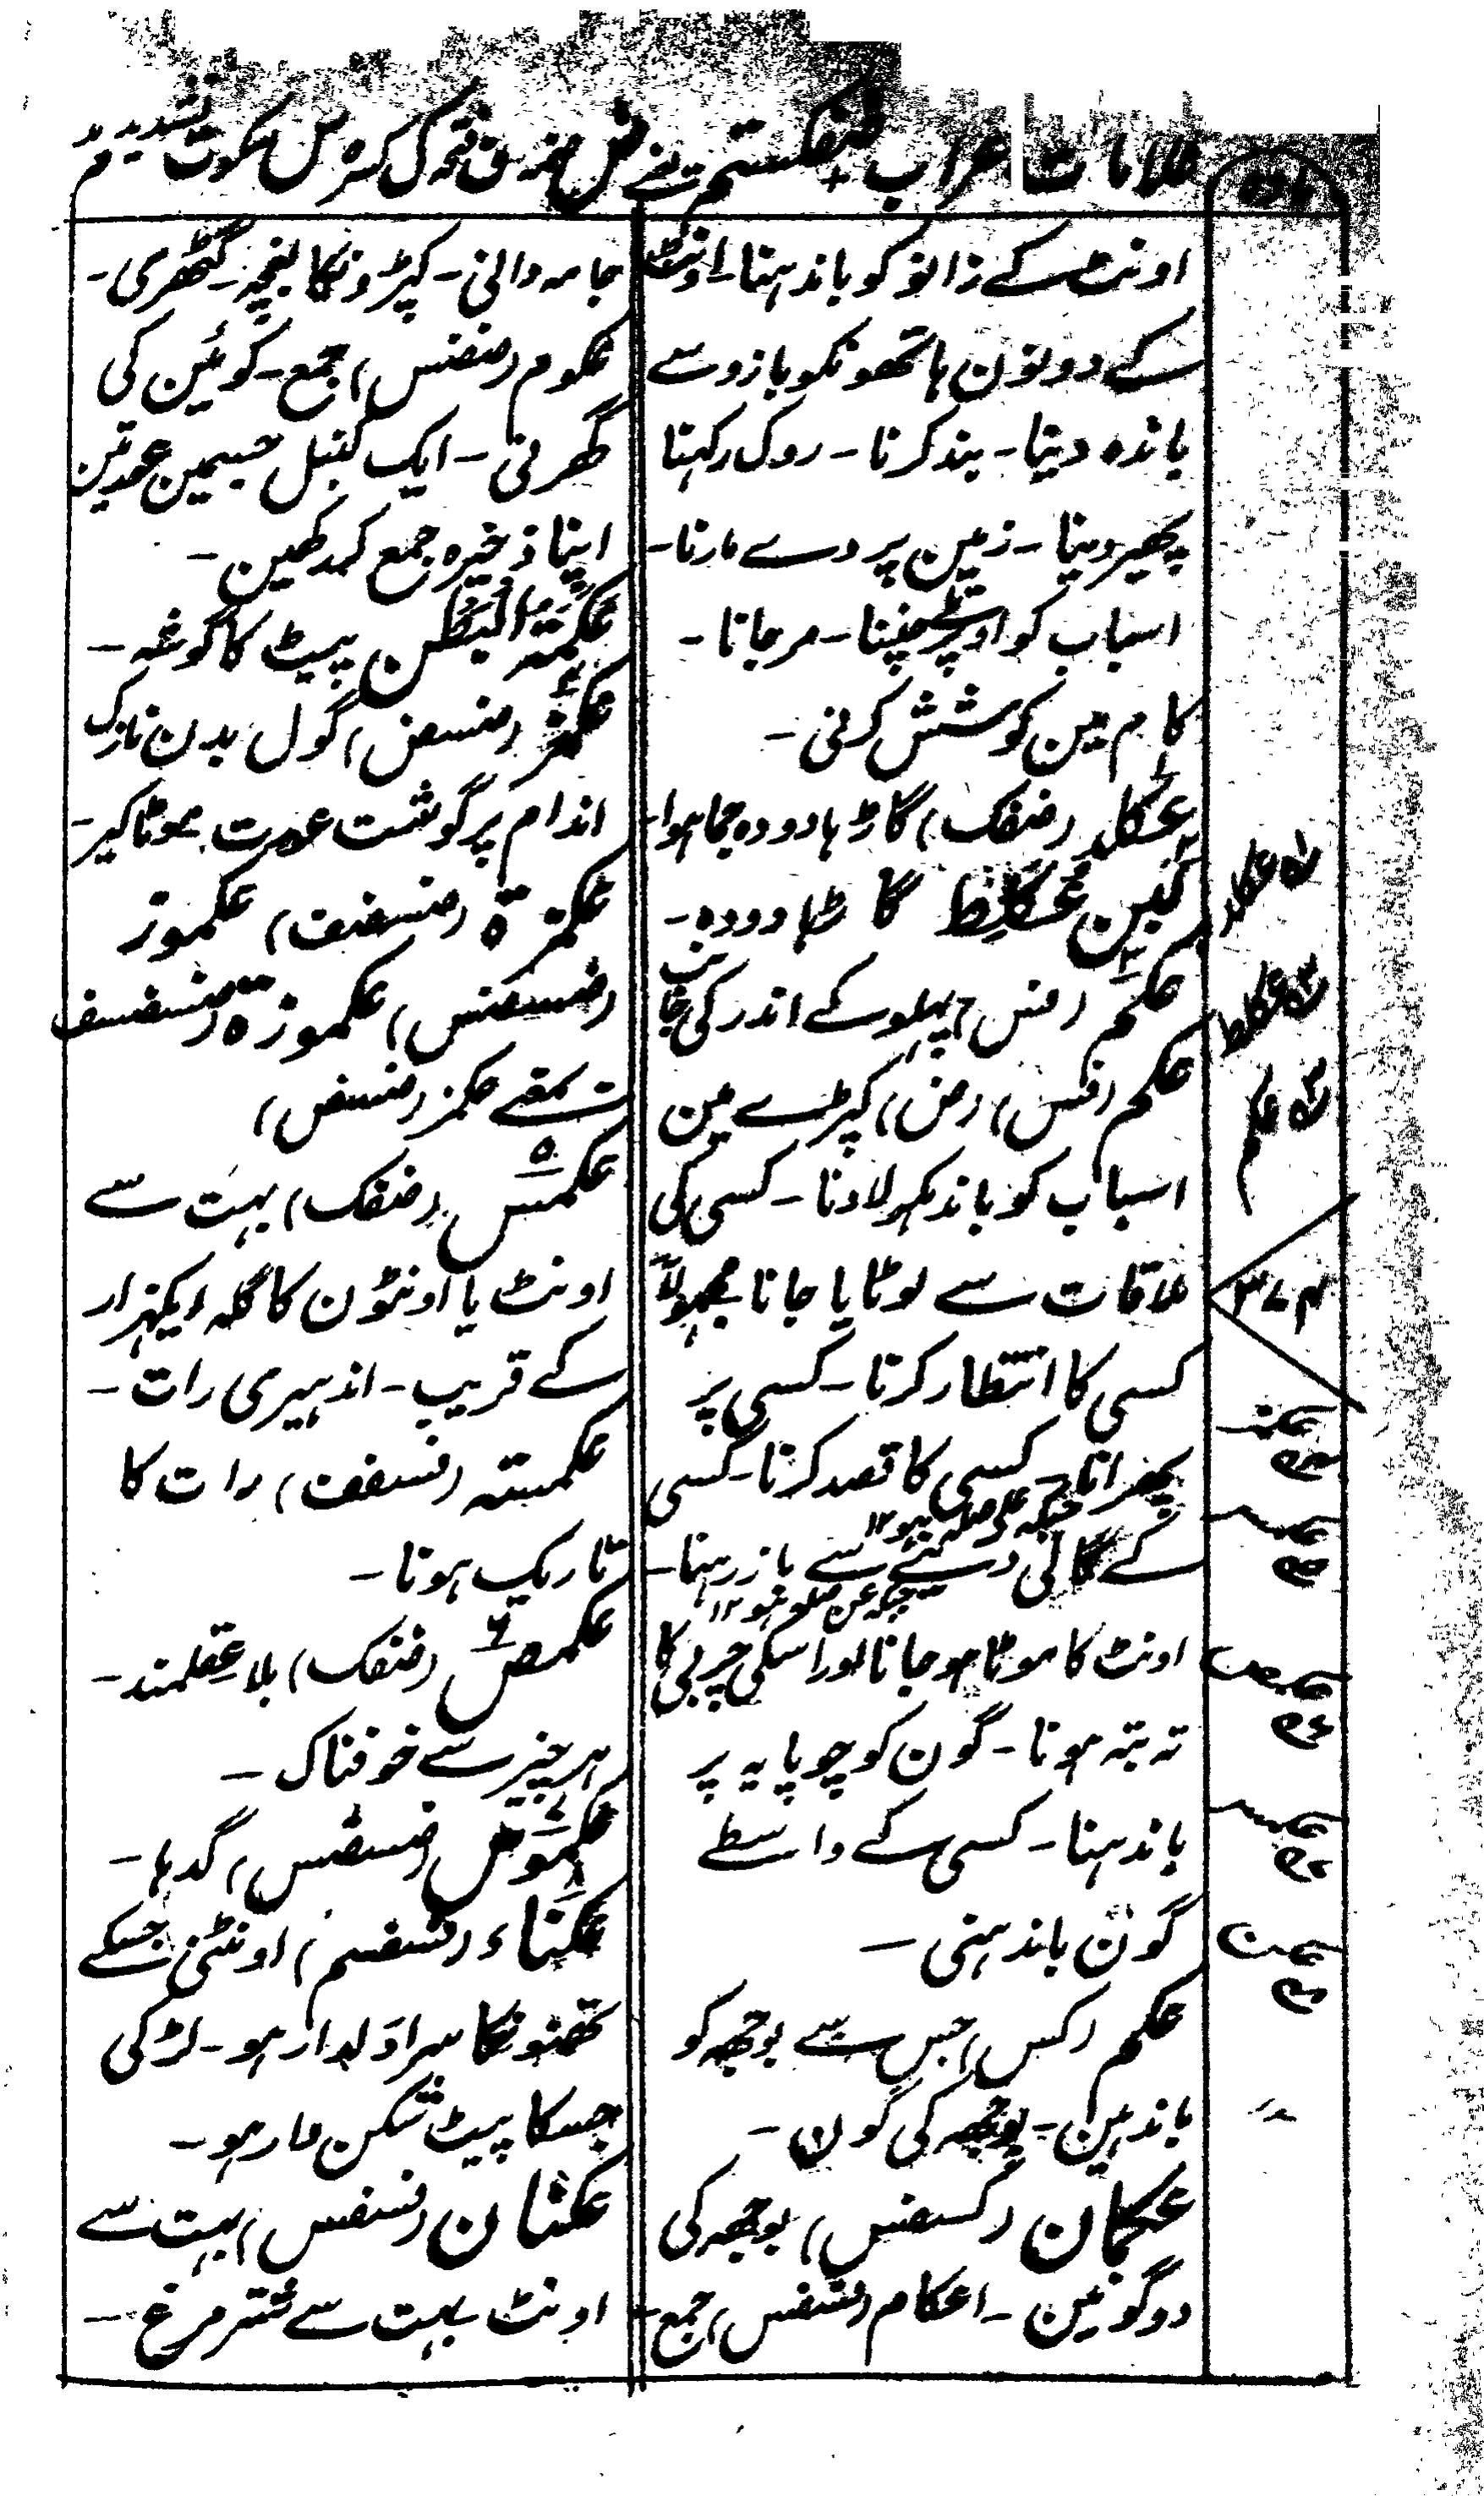 علامات اعراب
مادہ
اونٹ کے زانو کو باندہنا۔ اونٹ
کے دونون ہاتھونکو بازو سے
باندہ دینا۔ بند کرنا۔ روک رکہنا
پھیر دینا۔ زمین پر دے مارنا۔
اسباب کو اوپر تلے چننا۔ مر جانا۔
کام مین کوشش کرنی۔
عکلد (ضفک) گاڑہا دودہ جما ہوا۔
لبن عکلظ گاڑہا دودہ۔
عکم (فس) پہلو کے اندر کی جانب
عکم (فس) (ض) کپڑے مین
اسباب کو باندہکر لادنا۔ کسی کی
ملاقات سے لوٹایا جانا مجہولاً
کسی کا انتظار کرنا۔ کسی پر
پھر انا۔ کسی کا قصد کرنا۔ کسی
جبکہ علی صلہ ہو ۱۲
کے گالی دینے سے باز رہنا۔
جبکہ عن صلہ ہو ۱۲
اونٹ کا موٹا ہو جانا اور اسکی چربی کا
تہ بتہ ہونا۔ گون کو چوپایہ پر
باندہنا۔ کسی کے واسطے
گون باندہنی۔
عکم (کس) جس سے بوجہہ کو
باندہین۔ بوجہہ کی گون۔
عکمان (کسفس) بوجہہ کی
دو گونین۔ اعکام (فسفس) جمع۔
جامہ دانی۔ کپڑونکا بقچہ۔ گٹھری۔
عکوم (ضضس) جمع۔ کوئین کی
گھرنی۔ ایک کنبل جسمین عورتین
اپنا ذخیرہ جمع کر رکھین۔
عکمۃ البطن پیٹ کا گوشہ۔
عکمز (ضسض) گول بدن نازک
اندام پر گوشت عورت۔ موٹا کیر۔
عکمزۃ (ضسضف) عکموز
(ضسضس) عکموزۃ (ضسضسف)
بمعنے عکمز (ضسض)
عکمس (ضفک) بہت سے
اونٹ یا اونٹون کا گلہ ایکہزار
کے قریب۔ اندہیری رات۔
عکمسۃ (فسفف) رات کا
تاریک ہونا۔
عکمص (ضفک) بلا عقلمند۔
ہر چیز سے خوفناک۔
عکموص (ضسضس) گدہا۔
عکناء (فسفسم) اونٹنی جسکے
تھنونکا سرا ولدار ہو۔ لڑکی
جسکا پیٹ شکن دار ہو۔
عکنان (فسفس) بہت سے
اونٹ بہت سے شتر مرغ۔
عکلد
عکلظ
عکم
عکمز
عکمس
عکمص
عکن